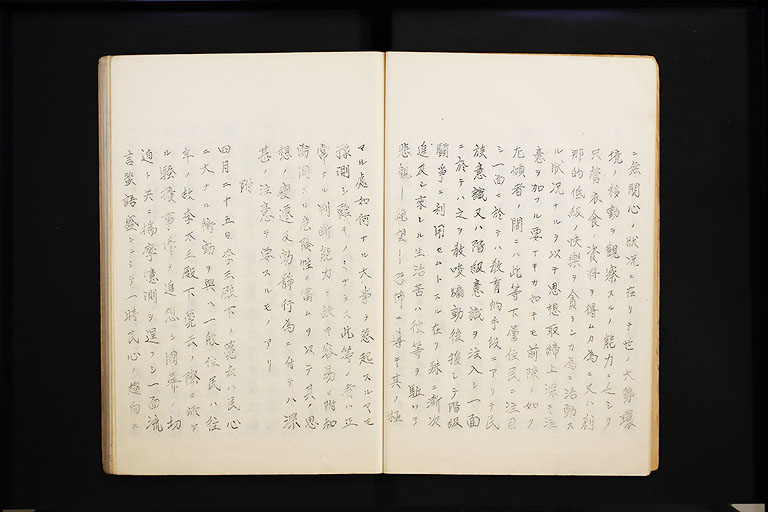 ニ無関心ノ状況ニ在リテ世ノ大勢環
境ノ移動ヲ観察スルノ能力ニ乏シク
只管衣食ノ資料ヲ得ムカ為ニ又ハ刹
那的低級ノ快楽ヲ貪ランカ為ニ活動ス
ル状況ナルヲ以テ思想取締上深キ注
意ヲ加フル要ナキカ如キモ前陳ノ如ク
尤傾者ノ間ニハ此等下層住民ニ注目
シ一面ニ於テハ教育的手段ニアリテ民
族意識又ハ階級意識ヲ注入シ一面
ニ於テハ之ヲ教唆煽動後援シテ階級
闘争ニ利用セムトスル在リ殊ニ漸次
迫及シ来レル生活苦ハ彼等ヲ駆リテ
悲観―絶望―恐怖ニ導キ其ノ極
マル処如何ナル大事ヲ惹起スルヤモ
予測シ難キノミナラス此等ノ者ハ正
常ナル判断能力ヲ欠キ容易ニ附和
雷同スル危険性ニ富ムヲ以テ其ノ思
想ノ変遷及動静行為ニ付テハ深
甚ノ注意ヲ要スルモノアリ
附
四月二十五日李王殿下ノ薨去ハ民心
ニ大ナル衝動ヲ与ヘ一般住民ハ往
年ノ故李太王殿下薨去ノ際ニ於ケ
ル騒擾事件ヲ追想シ国葬ノ切
迫ト共ニ揣摩憶測ヲ逞フシ一面流
言蜚語盛ンニシテ一時民心ノ趨向ニ